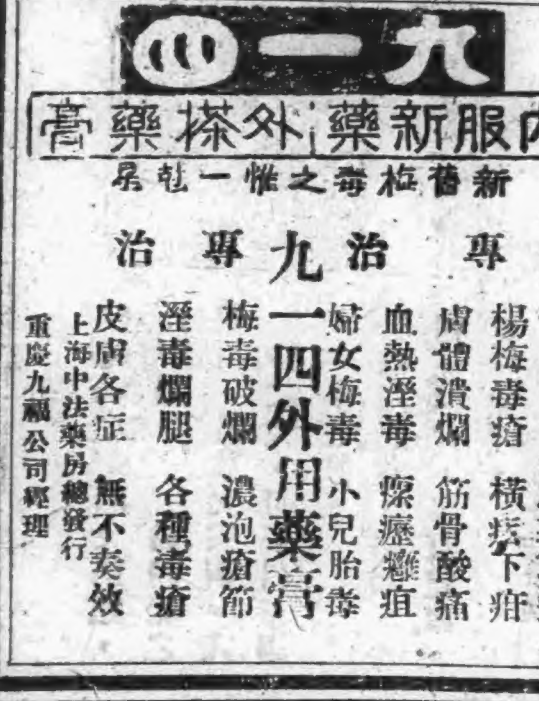 九一四
內服新藥 外搽藥膏
新舊梅毒之惟一尅星
專治
楊梅毒瘡 橫痃下疳
膚體潰爛 筋骨酸痛
血熱溼毒 瘰癧癰疽
婦女梅毒 小兒胎毒
九一四外用藥膏
專治
梅毒破爛 濃泡瘡節
溼毒爛腿 各種毒瘡
皮膚各症 無不奏效
上海中法藥房總發行
重慶九福公司經理